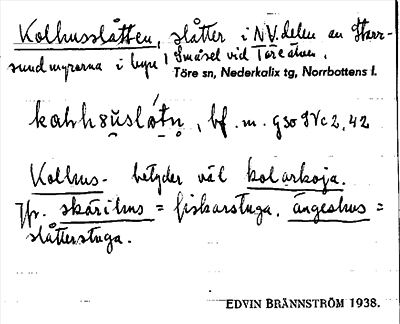 Kolhusslåtten, slåtter i NV. delen av Starr-
sundmyrarna i byn Småsel vid Töreälven.
Töre sn, Nederkalix tg, Norrbottens l.
bf. m. gso IVc2, 42
Kolhus- betyder väl kolarkoja.
Jfr. skärihus = fiskarstuga, ängeshus =
slåtterstuga.
EDVIN BRÄNNSTRÖM 1938.